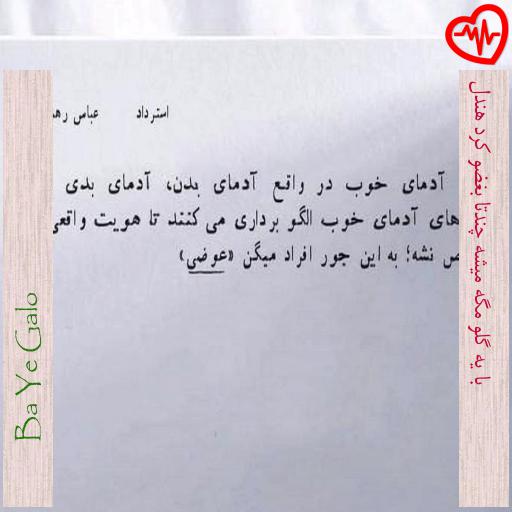 استرداد عباس
آدمای خوب در واقع آدمای بدن، آدمای بدی
های آدمای خوب الگو برداری می کنند تا هویت واقعی
نشه؛ به این جور افراد میگن «عوضی»
با یه گلو مگه میشه چندتا بغضو کرد هندل
Ba Ye Galo